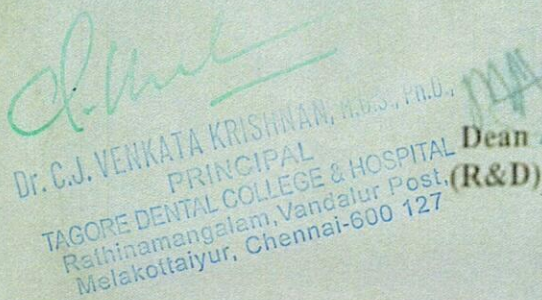 Dr. C.J. VENKATA KRISHNAN, M.D.S., Ph.D.,
PRINCIPAL
TAGORE DENTAL COLLEGE & HOSPITAL
Rathinamangalam, Vandalur Post,
Melakottaiyur, Chennai-600 127
Dean
(R&D)